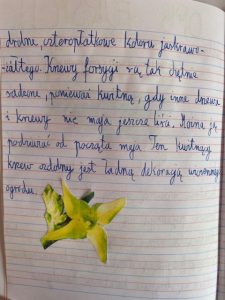 drobne, czteropłatkowe koloru jaskrawo-
-żółtego. Krzewy forsycji są tak chętnie
sadzone, ponieważ kwitną, gdy inne drzewa
i krzewy nie mają jeszcze liści. Można ją
podziwiać od początu maja. Ten kwitnący
krzew ozdobny jest ładną dekoracją wiosennego
ogrodu.